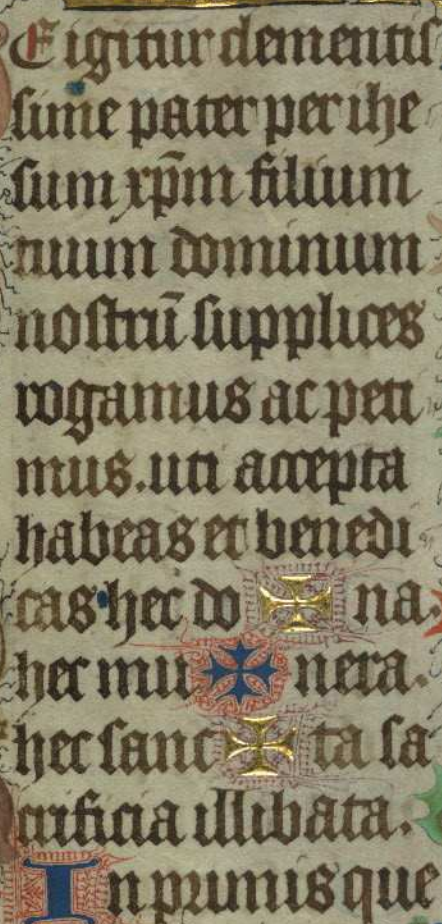 E igitur clementis
sime pater per ihe
sum xp̄m filium
tuum dominum
nostrū supplices
rogamus ac peti
mus. uti accepta
habeas et benedi
cas hec do ✠ na.
hec mu ✠ nera.
hec sanc ✠ ta sa
crificia illibata.
In primis que